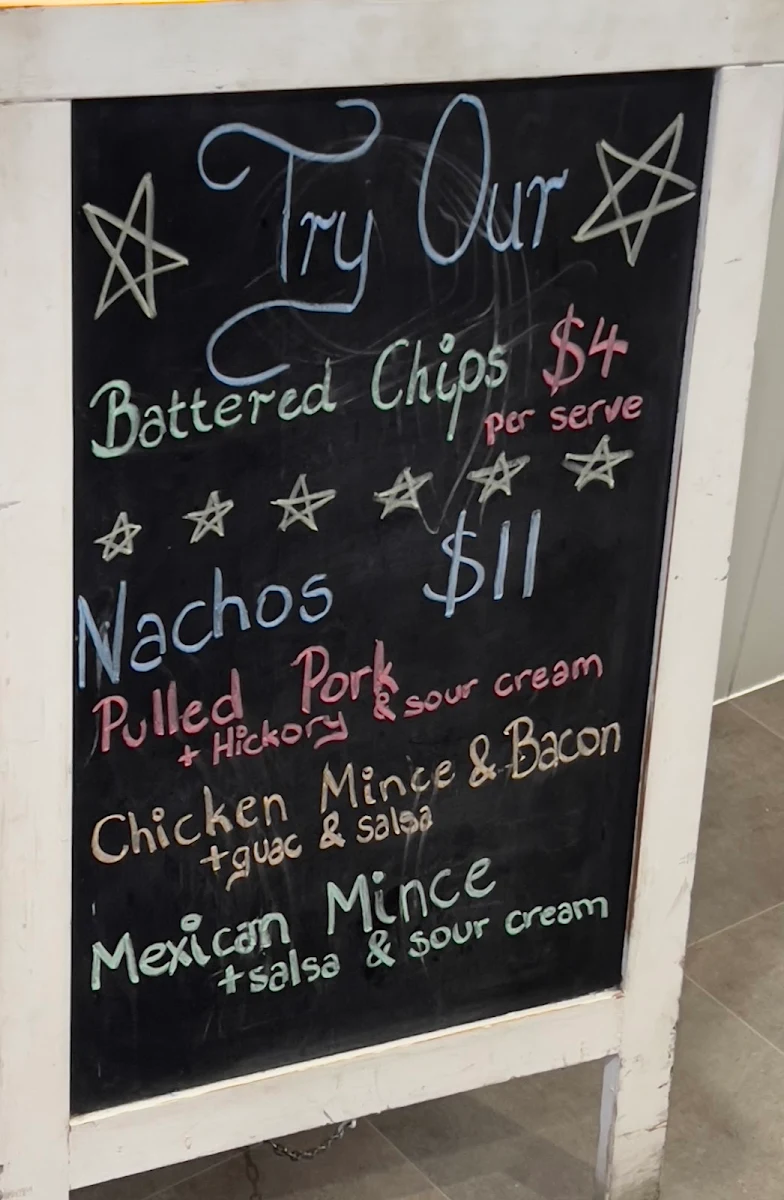 Try Our
Battered Chips $4
per serve
Nachos $11
Pulled Pork
+ Hickory & sour cream
Chicken Mince & Bacon
+guac & salsa
Mexican Mince
+salsa & sour cream